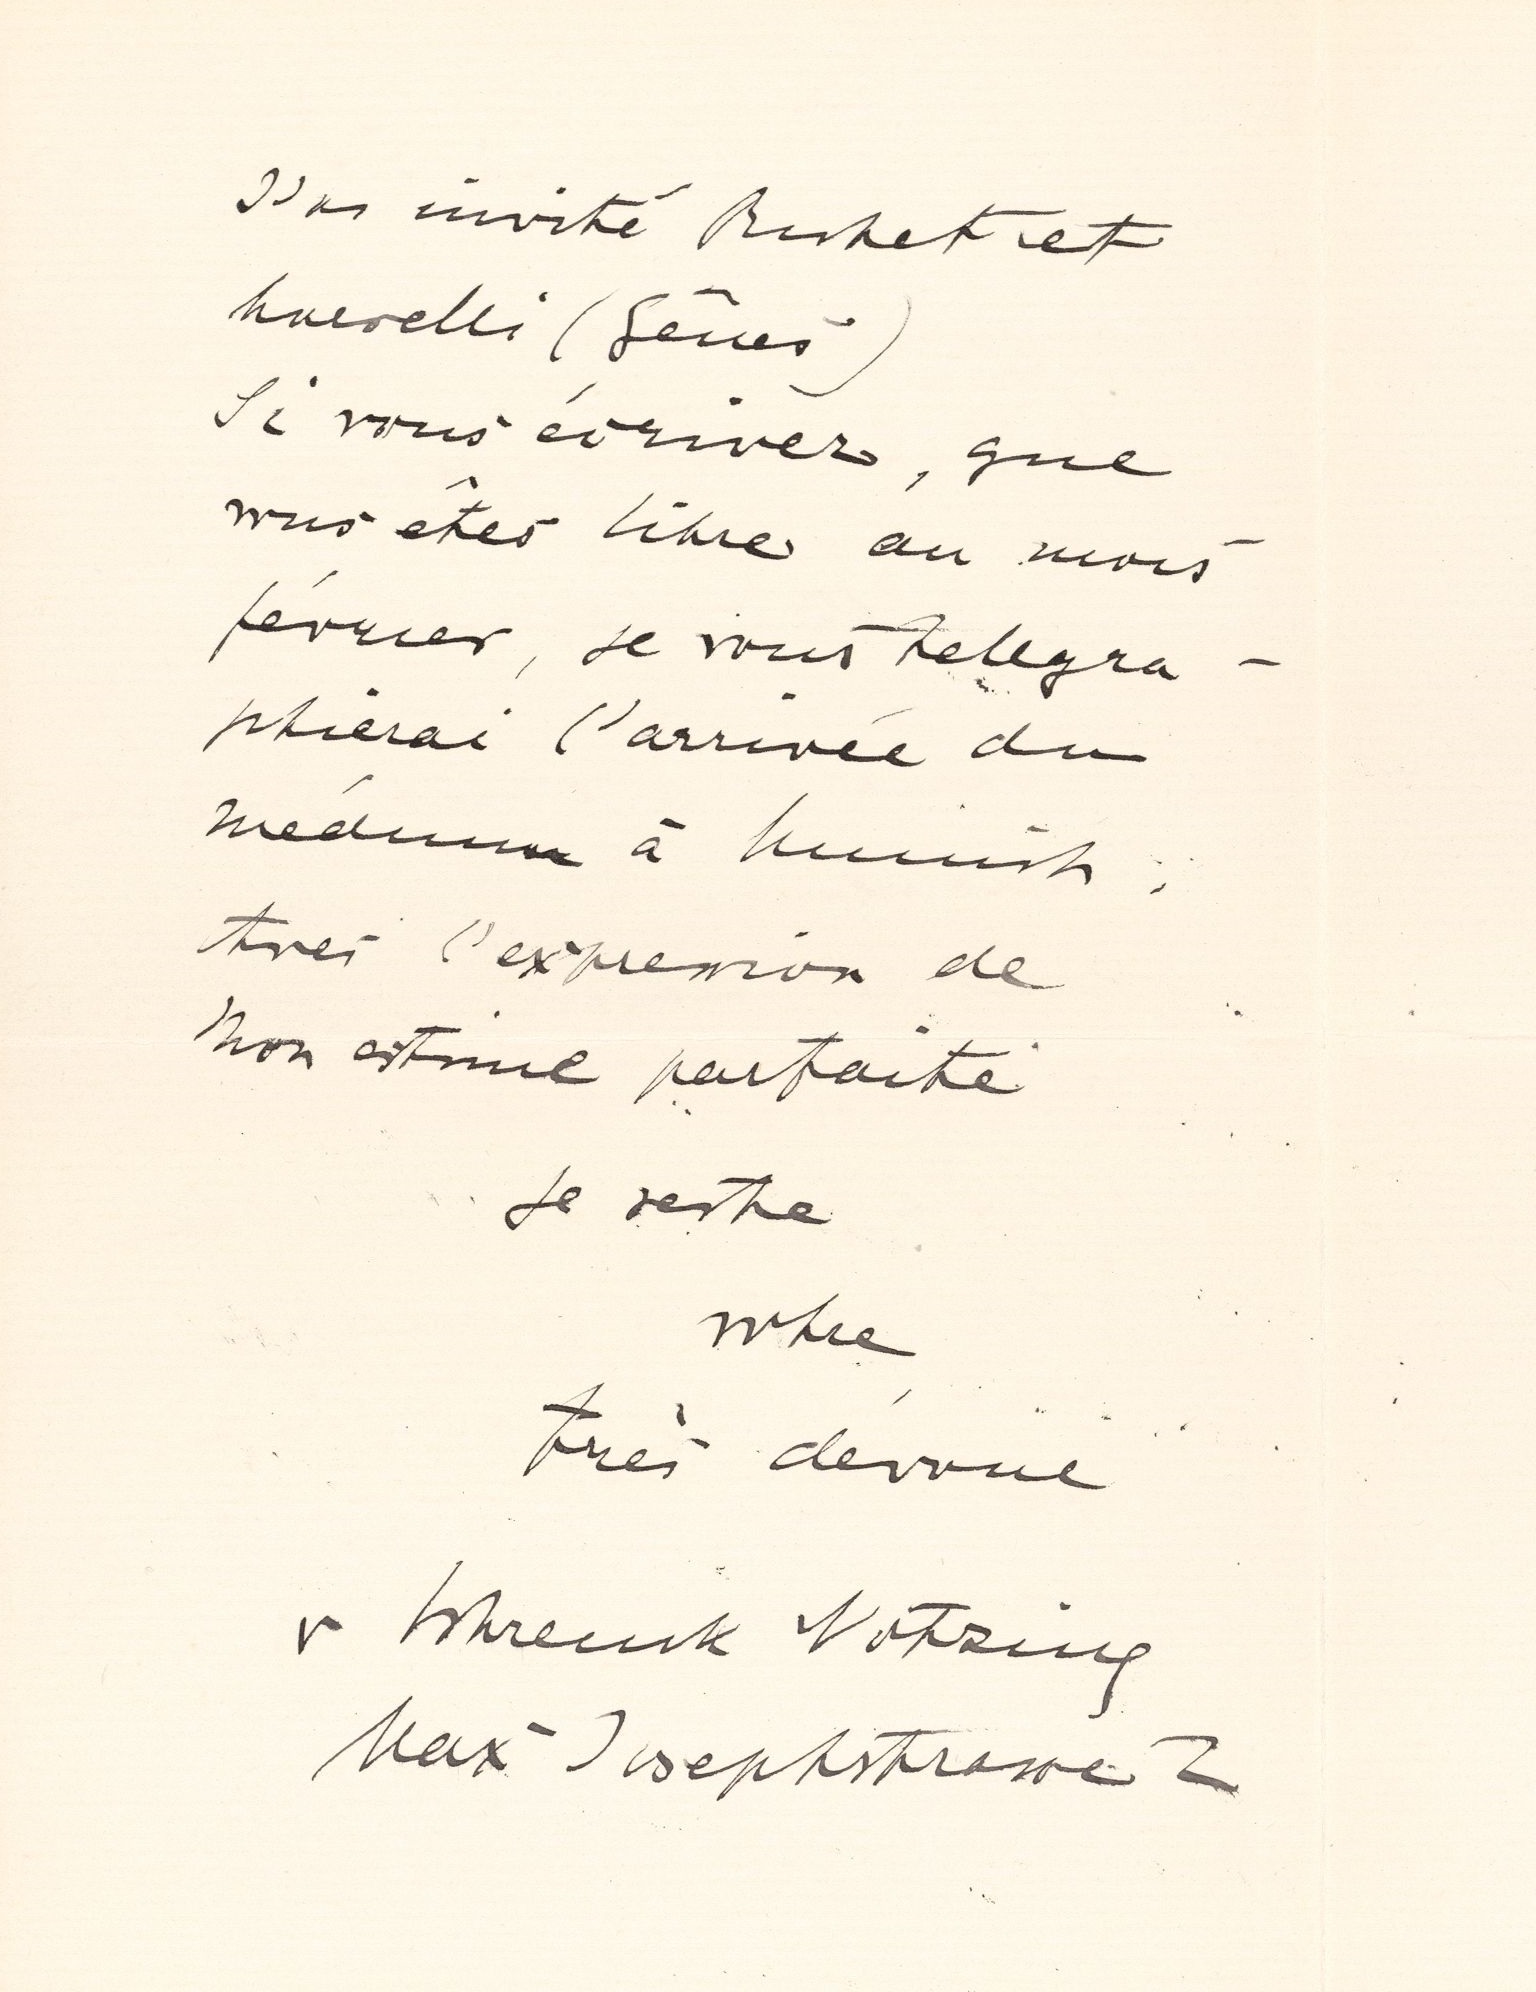 J'ai invité Richet et
Morselli (Gênes)
Si vous écrivez, que
vous êtes libre au mois
février, je vous telegra-
phierai l'arrivée du
médium à Munich.
Avec l'expression de
mon estime parfaite
je reste
votre
très dévoué
v Schrenck Notzing
Max Josephstrasse 2